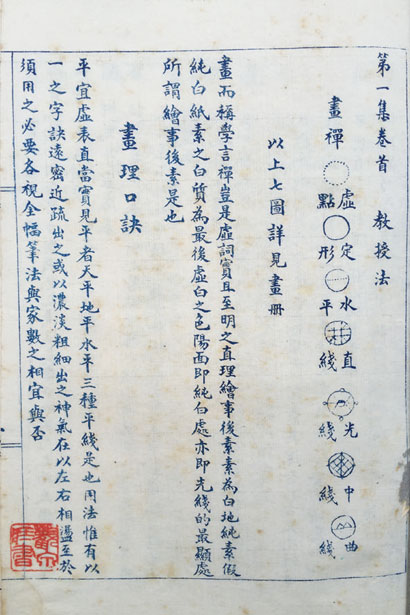 第一集卷首 教授法
畫禪 虛點 定形 水平 直綫 光綫 中綫 曲綫
以上七圖詳見畫册
畫而稱學言禪豈是虛詞實且至明之真理繪事後素素為白地純素假
純白紙素之白質為最後虛白之色陽面即純白處亦即光綫的最顯處
所謂繪事後素是也
畫理口訣
平宜虛表直當實見平者天平地平水平三種平綫是也用法惟有以
一之字訣遠密近疏出之或以濃淡粗細出之神氣在以左右相盪至於
須用之必要各視全幅筆法與家數之相宜與否